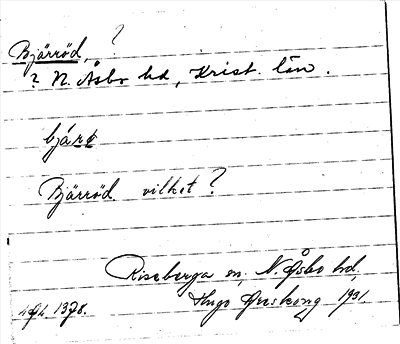 Bjärröd, ?
? N. Åsbo hd, Krist. län.
Bjärröd vilket?
Riseberga sn, N. Åsbo hd,
Hugo Areskoug 1931.
1378.